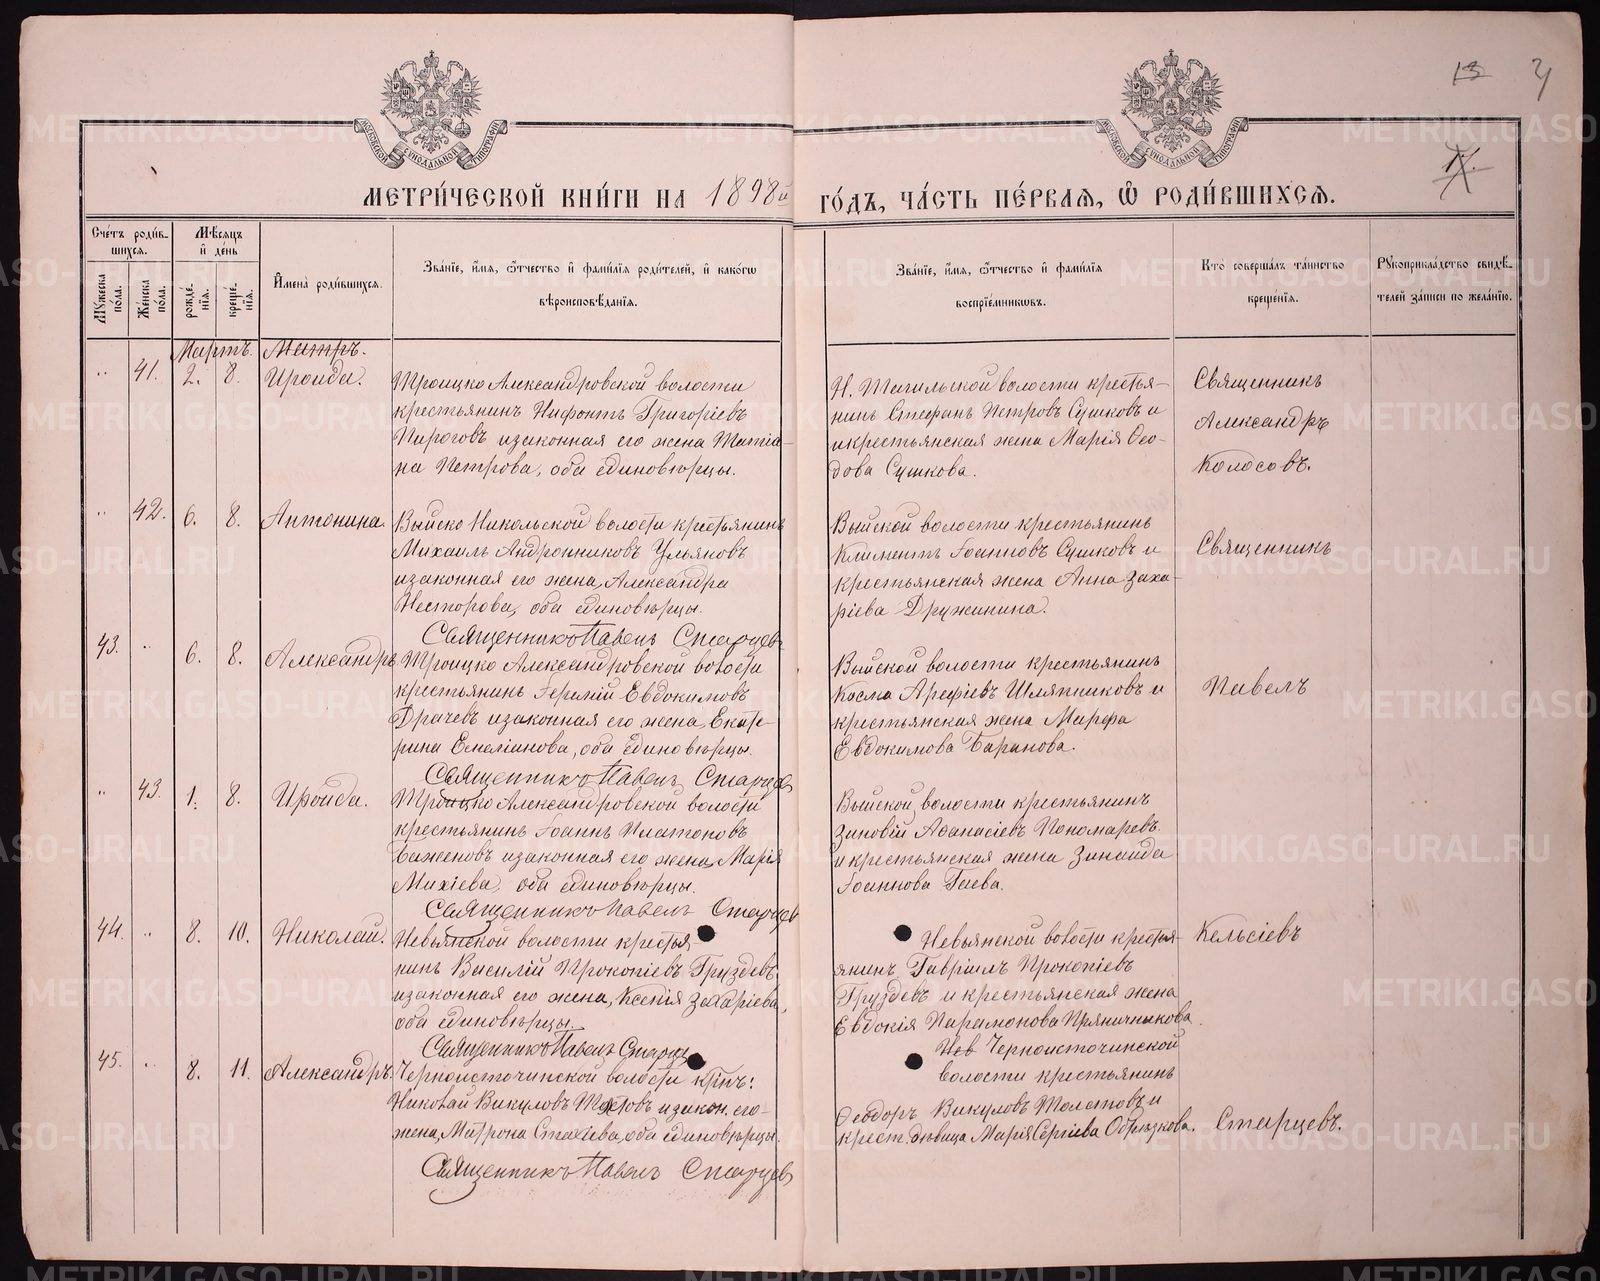 13 4
МОСКОВСКОЙ СѴНОДАЛЬНОЙ ТИПОГРАФІИ
МОСКОВСКОЙ СѴНОДАЛЬНОЙ ТИПОГРАФІИ
МЕТРИ́ЧЕСКОЙ КНИ́ГИ НА 1898й ГО́ДЪ, ЧА́СТЬ ПЕ́РВАЯ, Ѡ РОДИ́ВШИХСЯ.
Сче́тъ роди́вшихся.
Мꙋ́жеска по́ла.
Же́нска по́ла.
Мѣ́сяцъ и҆ де́нь
рожде́нїя.
креще́нїя.
И҆мена̀ роди́вшихся.
Зва́нїе, и҆́мя, ѻ҆́тчество и҆ фами́лїя роди́телей, и҆ како́гѡ вѣроисповѣ́данїя.
Зва́нїе, и҆́мя, ѻ҆́тчество и҆ фами́лїя воспрїе́мникѡвъ.
Кто̀ соверша́лъ та́инство креще́нїя.
Рꙋкоприкла́дство свидѣ́телей за́писи по жела́нїю.
Мартъ. Матръ.
" 41. 2. 8. Ироида.
Троицко Александровской волости
крестьянинъ Нифонтъ Григоріевъ
Пироговъ и законная его жена Татіа-
на Петрова, оба единовѣрцы.
Н. Тагильской волости крестья-
нинъ Стефанъ Петровъ Сушковъ и
и крестьянская жена Марія Ѳео-
дова Сушкова.
Священникъ
Александръ
Колосовъ.
" 42. 6. 8. Антонина.
Выйско Никольской волости крестьянинъ
Михаилъ Андронниковъ Ульяновъ
и законная его жена, Александра
Несторова, оба единовѣрцы.
Священникъ Павелъ Старцев
Выйской волости крестьянинъ
Климентъ Іоанновъ Сушковъ и
крестьянская жена Анна Заха-
ріева Дружинина.
Священникъ
43. " 6. 8. Александръ
Троицко Александровской волости
крестьянинъ Геремій Евдокимовъ
Драчевъ и законная его жена, Екате-
рина Емеліанова, оба единовѣрцы.
Священникъ Павелъ Старцев
Выйской волости крестьянинъ
Косма Арефіевъ Шляпниковъ и
крестьянская жена Марфа
Евдокимова Баранова.
Павелъ
" 43. 1. 8. Ироида.
Троицко Александровской волости
крестьянинъ Іоаннъ Платоновъ
Баженовъ и законная его жена, Марія
Михіева, оба единовѣрцы.
Священникъ Павелъ Старцев
Выйской волости крестьянинъ
Зиновій Аѳанасіевъ Пономаревъ
и крестьянская жена Зинаида
Іоаннова Гаева.
44. " 8. 10. Николай.
Невьянской волости крестья-
нинъ Василій Прокопіевъ Груздевъ
и законная его жена, Ксенія Захаріева,
оба единовѣрцы.
Священникъ Павелъ Старц
Невьянской волости крестья-
янинъ Гавріилъ Прокопіевъ
Груздевъ и крестьянская жена
Евдокія Парамонова Пряничникова.
Кельсіевъ
45. " 8. 11. Александръ.
Черноисточинской волости крнъ:
Николай Викуловъ и закон. его-
жена, Матрона Стахіева, оба единовѣрцы.
Священникъ Павелъ Старцев
Черноисточинской
волости крестьянинъ
Ѳеодоръ Викуловъ Толстовъ и
крест. дѣвица Марія Сергіева Обрызкова.
Старцевъ.